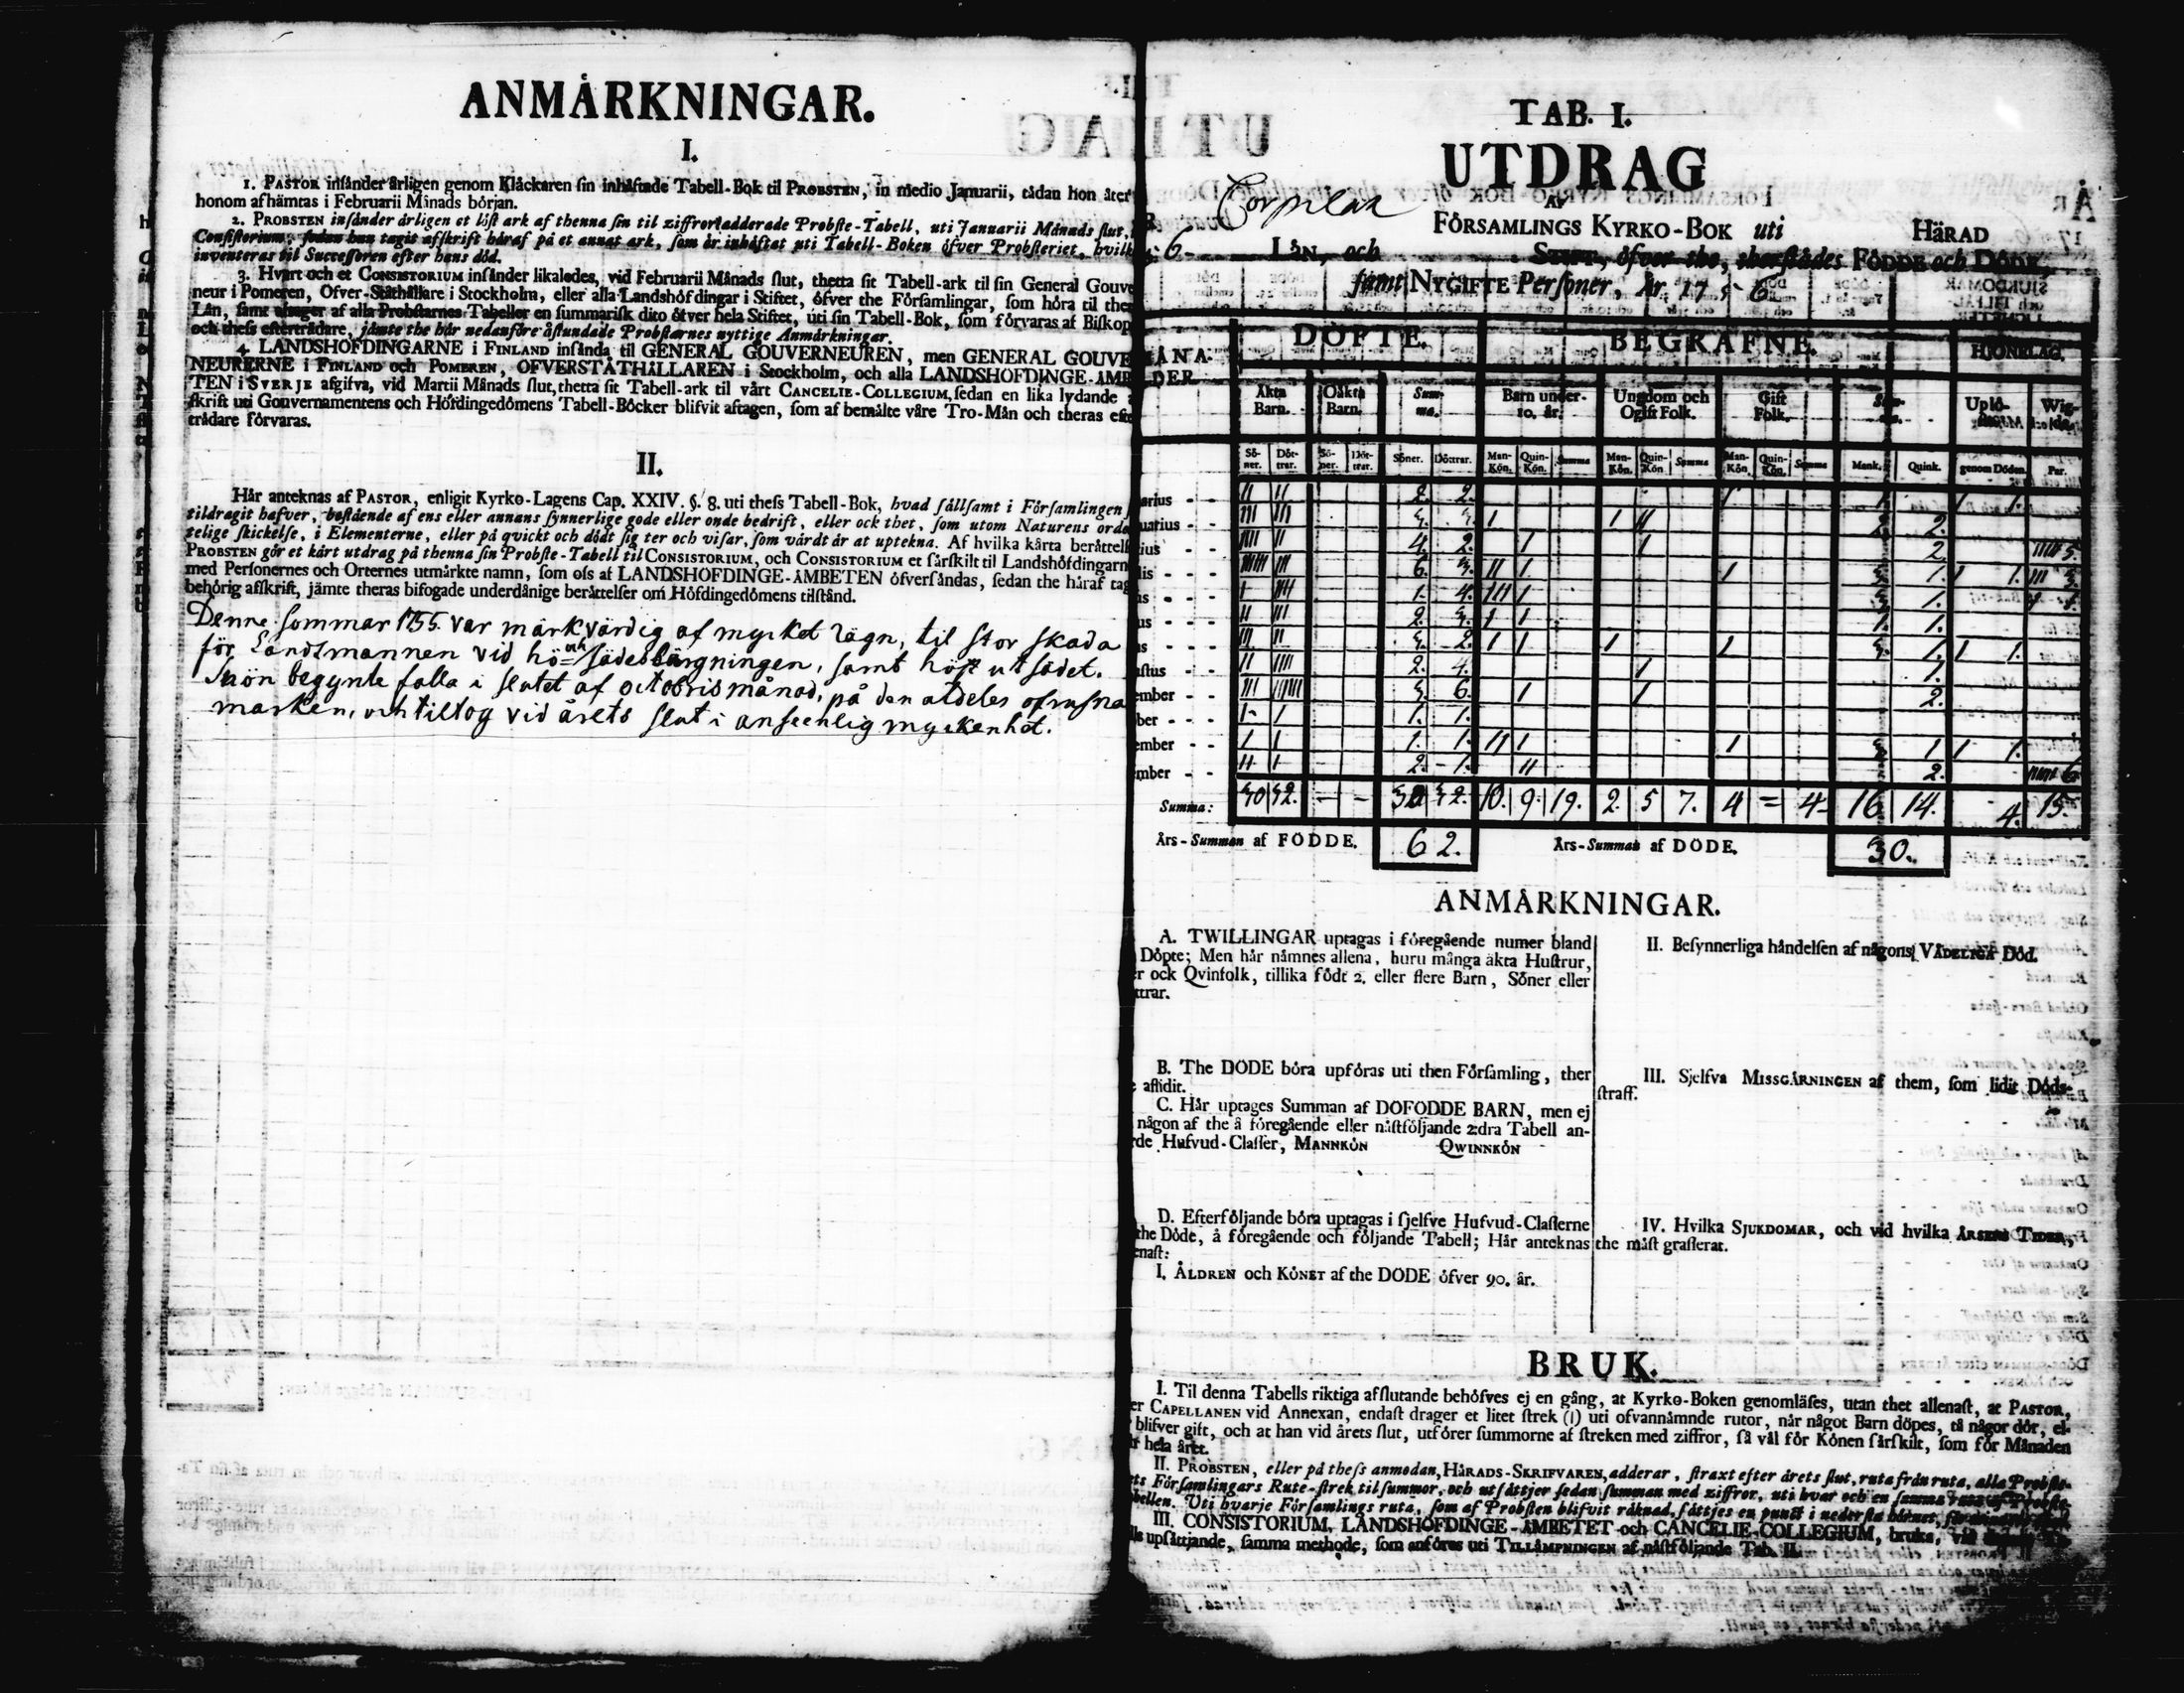 ANMÅRKNINGAR.
I.
1. PASTOR insånder årligen genom Klåckaren sin inhåftade Tabell-Bok til PROBSTEN, in medio Januarii, tådan hon åter
honom afhåmtas i Februarii Månads början.
2. PROBSTEN insånder årligen et löst ark af thenna sin til ziffror adderade Probste-Tabell, uti Januarii Månads slut,
Consistorium, sedan han tagit afskrift håraf på et annat ark, som år inhåftat uti Tabell-Boken öfver Probsteriet, hvilk
inventeras til Successoren efter hans död.
3. Hvart och et CONSISTORIUM insånder likaledes, vid Februarii Månads slut, thetta sit Tabell-ark til sin General Gouve
neur i Pomeren, Öfver-Ståthållare i Stockholm, eller alla Landshöfdingar i Stiftet, öfver the Församlingar, som höra til ther
Lån, samt af alla Probstarnes Tabeller en summarisk dito öfver hela Stiftet, uti sin Tabell-Bok, som förvaras af Biskop
och thess eftertrådare, jåmte the hår nedanföre åstundade Probstarnes nyttige Anmårkningar.
4. LANDSHÖFDINGARNE i FINLAND insånda til GENERAL GOUVERNEUREN, men GENERAL GOUVE
NEURERNE i FINLAND och POMEREN, ÖFVERSTÅTHÅLLAREN i Stockholm, och alla LANDSHÖFDINGE-ÅMB
TEN i SVERJE afgifva, vid Martii Månads slut, thetta sit Tabell-ark til vårt CANCELIE-COLLEGIUM, sedan en lika lydande
skrift uti Gouvernamentens och Höfdingedömens Tabell-Böcker blifvit aftagen, som af bemålte våre Tro-Mån och theras efte
trådare förvaras.
II.
Hår anteknas af PASTOR, enligit Kyrko-Lagens Cap. XXIV. §. 8. uti thess Tabell-Bok, hvad sållsamt i Församlingen
tildragit hafver, bestående af ens eller annans synnerlige gode eller onde bedrift, eller ock thet, som utom Naturens orde
telige skickelse, i Elementerne, eller på qvickt och dödt sig ter och visar, som vårdt år at uptekna. Af hvilka kårta beråttels
PROBSTEN gör et kårt utdrag på thenna sin Probste-Tabell til CONSISTORIUM, och CONSISTORIUM et sårskilt til Landshöfdingarn
med Personernes och Orternes utmårkte namn, som oss af LANDSHÖFDINGE-ÅMBETEN öfversåndas, sedan the håraf tag
behörig afskrift, jåmte theras bifogade underdånige beråttelser om Höfdingedömens tilstånd.
Denne sommar 1755. var märkvärdig af mycket rägn, til stor skada
för Landtmannen vid hö= och sädesbärgningen, samt höst utsädet.
Snön begynte falla i slutet af octobris månad, på den aldeles ofrusna
marken, och tiltog vid årets slut i anseenlig myckenhet.
TAB. I.
UTDRAG
AF
Corpilax
FÖRSAMLINGS KYRKO-BOK uti HÄRAD
6. LÅN, och STIFT, öfver the, therstådes FÖDDE och DÖDE,
samt NYGIFTE Personer, År 1756
MÅNA-DER. DÖPTE. BEGRAFNE. HJONELAG.
Åkta Barn. Oåkta Barn. Summa. Barn under 10. år. Ungdom och Ogift Folk. Gift Folk. Uplö- Wig-
Sö-ner. Döt-trar. Sö-ner. Döt-trar. Söner. Döttrar. Man-Kön. Quin-Kön. Summa Man-Kön. Quin-Kön Summa Man-Kön Quin-Kön. Summa Mank. Quink. genom Döden. Par.
arius - - II II 2. 2. I 1. I 1.
uarius - - III III 3. 3. I I II 2. 2.
tius - - IIII II 4. 2. I I 2. IIIII 5.
lis - - - IIIIII III 6. 3. II I I 3. 1. I 1. III 3.
us - - - I IIII 1. 4. III I 3. 1. 1.
us - - - II III 2. 3. I I 1. 1.
s - - - III II 3. 2. I I I I 3. 1. I 1.
stus - - II IIII 2. 4. I 1.
ember - - III IIIIII 3. 6. I I 2.
ber - - - I I 1. 1.
ember - - I I 1. 1. II I I 3. 1. I 1.
mber - - II I 2. 1. II 2. 6.
Summa: 30 32. - - 30 32. 10. 9. 19. 2. 5 7. 4 = 4. 16. 14. 4. 15.
Års-Summan af FÖDDE. 62. Års-Summan af DÖDE. 30.
ANMÅRKNINGAR.
A. TWILLINGAR uptagas i föregående numer bland
Döpte; Men hår nåmnes allena, huru många åkta Hustrur,
r ock Qvinfolk, tillika födt 2. eller flere Barn, Söner eller
ttrar.
B. The DÖDE böra upföras uti then Församling, ther
aflidit.
C. Hår uptages Summan af DÖFÖDDE BARN, men ej
någon af the å föregående eller nåstföljande 2:dra Tabell an-
de Hufvud-Classer, MANNKÖN QWINNKÖN
D. Efterföljande böra uptagas i sjelfve Hufvud-Classerne
the Döde, å föregående och följande Tabell; Hår anteknas
enast:
I. ÅLDREN och KÖNET af the DÖDE öfver 90. år.
II. Besynnerliga håndelsen af någons VÅDELIGA Död.
III. Sjelfva MISSGÅRNINGEN af them, som lidit Döds-
straff.
IV. Hvilka SJUKDOMAR, och vid hvilka ÅRSENS TIDER,
the måst grasserat.
BRUK.
I. Til denna Tabells riktiga afslutande behöfves ej en gång, at Kyrko-Boken genomlåses, utan thet allenast, at PASTOR,
er CAPELLANEN vid Annexan, endast drager et litet strek (I) uti ofvannåmnde rutor, når något Barn döpes, tå någor dör, el-
blifver gift, och at han vid årets slut, utförer summorne af streken med ziffror, så vål för Könen sårskilt, som för Månaden
hela året.
II. PROBSTEN, eller på thess anmodan, HÅRADS-SKRIFVAREN, adderar, straxt efter årets slut, ruta från ruta, alla Probste-
ts Församlingars Rute-strek til summor, och utsåttjer sedan summan med ziffror, uti hvar och en
bellen. Uti hvarje Församlings ruta, som af Probsten blifvit råknad, såttjes en punct i nedersta hörnet,
III. CONSISTORIUM, LANDSHÖFDINGE-ÅMBETET och CANCELIE-COLLEGIUM, bruka, vid
upsåttjande, samma methode, som anföres uti TILLÅMPNINGEN af nåstföljande Tab. II.